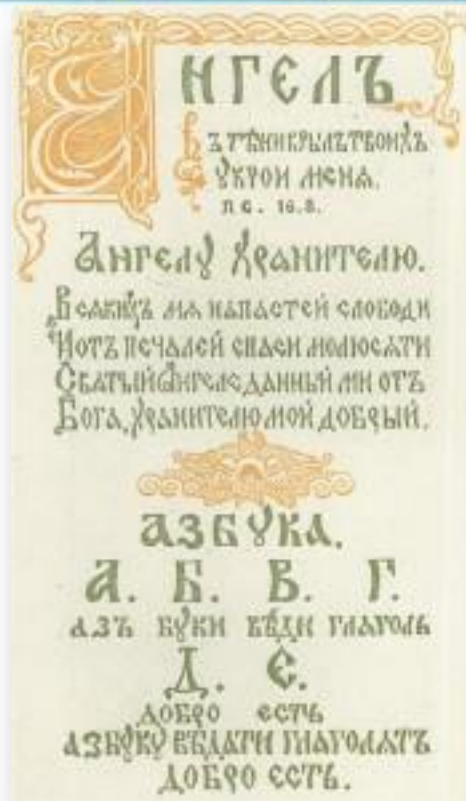 АНГЕЛЪ
ВЪ ТѢНИ КРЫЛЪ ТВОИХЪ
УКРОЙ МЕНЯ.
ПС. 16.8.
АНГЕЛУ ХРАНИТЕЛЮ.
Всякихъ мя напастей слободи
И отъ печалей спаси молюся ти
Святый Ангеле данный ми отъ
Бога, хранителю мой добрый.
АЗБУКА.
А. Б. В. Г.
АЗЪ БУКИ ВѢДИ ГЛАГОЛЬ
Д. Е.
ДОБРО ЕСТЬ
АЗБУКУ ВѢДАТИ ГЛАГОЛЯТЪ
ДОБРО ЕСТЬ.